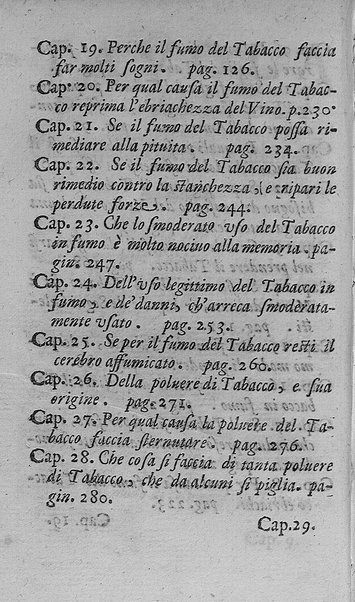 Cap. 19. Perche il fumo del Tabacco faccia
far molti sogni. pag. 126.
Cap. 20. Per qual causa il fumo del Tabac-
co reprima l'ebriachezza del Vino. p.230.
Cap. 21. Se il fumo del Tabacco possa ri-
mediare alla pituita. pag. 234.
Cap. 22. Se il fumo del Tabacco sia buon
rimedio contro la stanchezza, e ripari le
perdute forze. pag. 244.
Cap. 23. Che lo smoderato vso del Tabacco
in fumo è molto nociuo alla memoria. pa-
gin. 247.
Cap. 24. Dell'vso legittimo del Tabacco in
fumo, e de' danni, ch'arreca smoderata-
mente vsato. pag. 253.
Cap. 25. Se per il fumo del Tabacco resti il
cerebro affumicato. pag. 260.
Cap. 26. Della poluere di Tabacco, e sua
origine. pag. 271.
Cap. 27. Per qual causa la poluere del Ta-
bacco faccia sternutare. pag. 276.
Cap. 28. Che cosa si faccia di tanta poluere
di Tabacco, che da alcuni si piglia. pa-
gin. 280.
Cap.29.